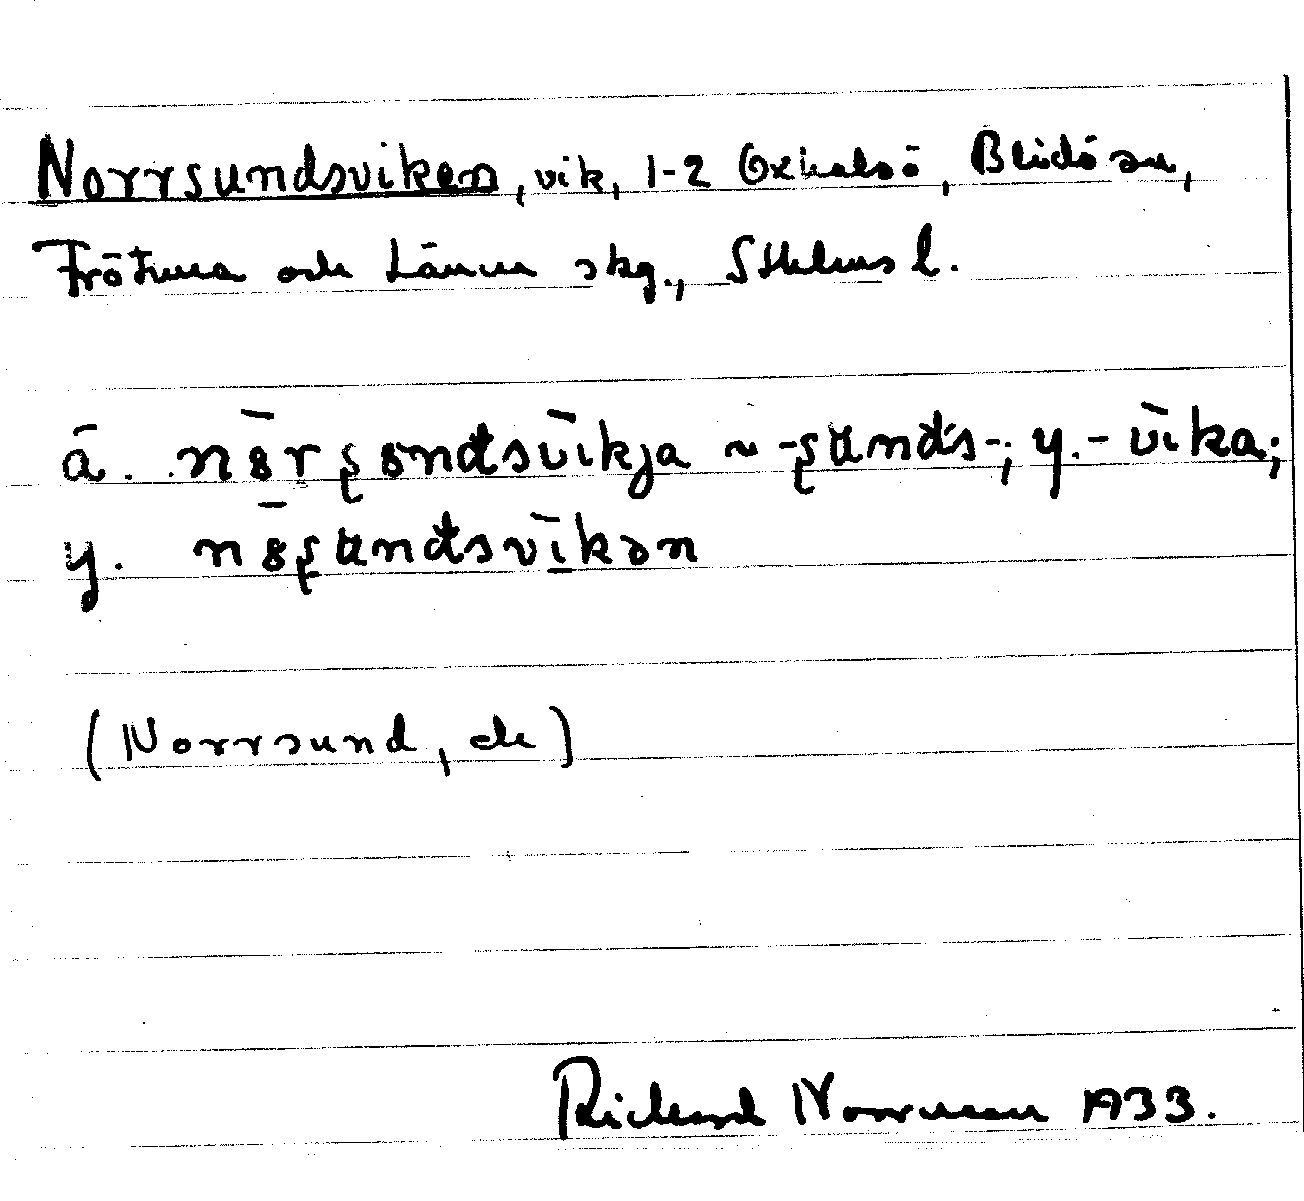 Norrsundsviken, vik, 1-2 Oxhalsö, Blidö sn,
Frötuna och Länna skg., Sthlms l.
ä. nȣ̄rʂȣndsv̄ikja ~ -ʂʉnds-; y. - v̄ika;
y. nȣ̱ʂʉndsvīkən
(Norrsund, de)
Rickard Norrman 1933.